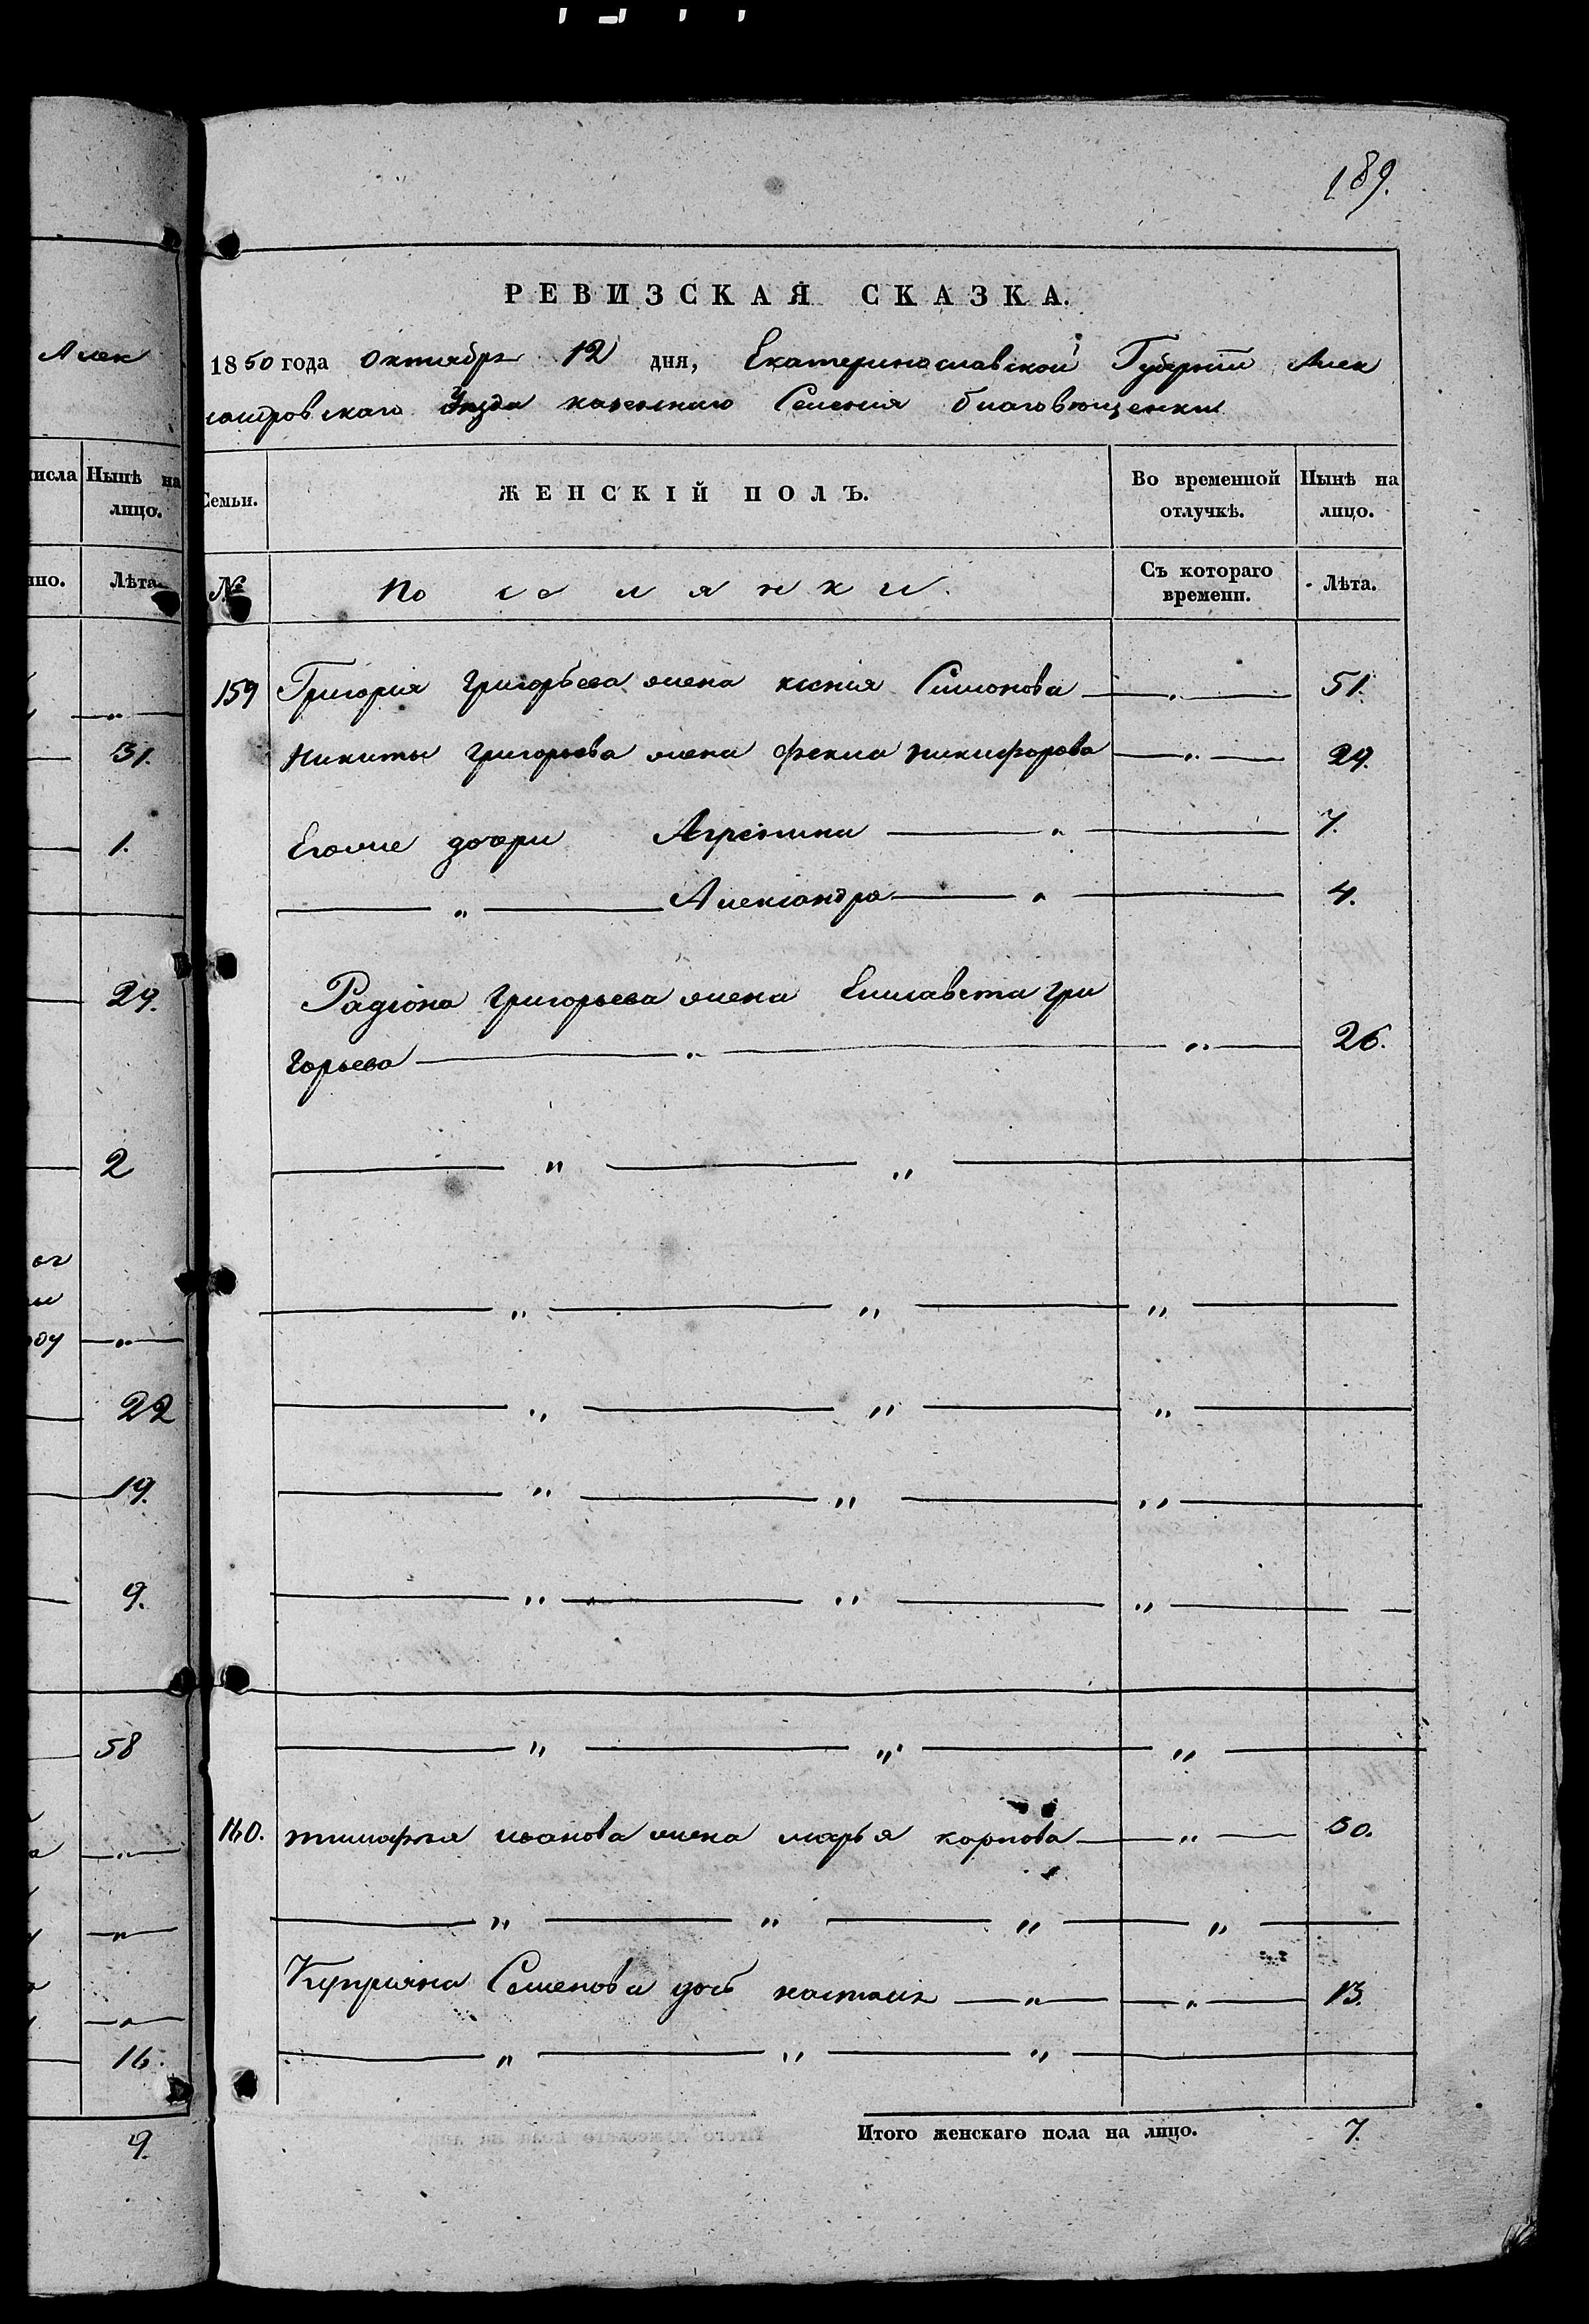 189.
РЕВИЗСКАЯ СКАЗКА.
Алек
1850 года Октября 12 дня, Екатеринославской Губерніи Алек
сандровскаго Уезда казеннаго Селенія благовющенки
числа Нынѣ на лицо.
Семьи. ЖЕНСКІЙ ПОЛЪ. Во временной отлучкѣ. Нынѣ на лицо.
Лѣта.
№ Поселянки. Съ котораго времени. Лѣта.
159 Григорія Григорьева жена ксенія Симонова — „ — 51.
Никиты Григорьева жена Фекла никифорова — „ — 29.
31.
Еговые дочери Агрепина — „ — 7.
1.
— „ — Александра — „ — 4.
29.
Радіона Григорьева жена Елисавета гри
горьева — „ — „ — 26.
2
22
19.
9.
58
160. ивонова жена марья карпова — „ — 50.
Куприяна Семенова дочь настасья — „ — „ — 13.
16.
Итого женскаго пола на лицо. 7.
9.